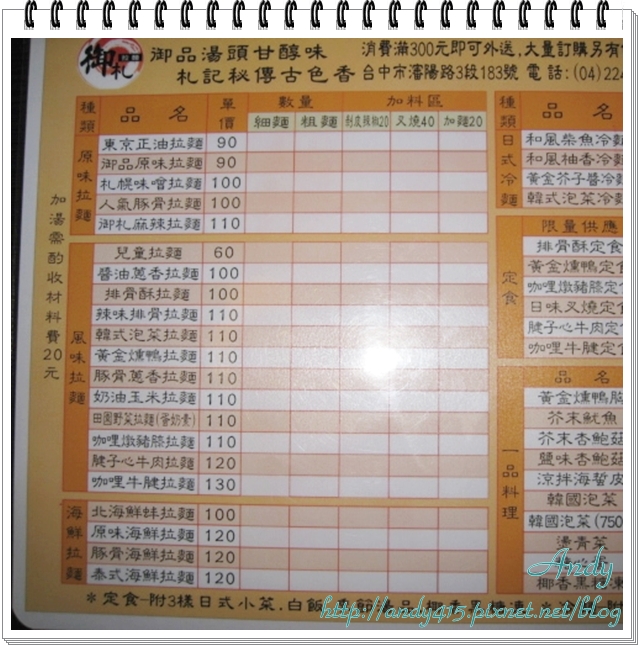 御札 拉麵
御品湯頭甘醇味
札記秘傳古色香
消費滿300元即可外送,大量訂購另有
台中市瀋陽路3段183號 電話:(04)224
種類 品名 單價 數量 加料區
細麵 粗麵 剝皮辣椒20 叉燒40 加麵20
原味拉麵
東京正油拉麵 90
御品原味拉麵 90
札幌味噌拉麵 100
人氣豚骨拉麵 100
御札麻辣拉麵 110
風味拉麵
兒童拉麵 60
醬油蔥香拉麵 100
排骨酥拉麵 100
辣味排骨拉麵 110
韓式泡菜拉麵 110
黃金燻鴨拉麵 110
豚骨蔥香拉麵 110
奶油玉米拉麵 110
田園野菜拉麵(蛋奶素) 110
咖哩燉豬膝拉麵 110
腱子心牛肉拉麵 120
咖哩牛腱拉麵 130
海鮮拉麵
北海鮮蚌拉麵 100
原味海鮮拉麵 120
豚骨海鮮拉麵 120
泰式海鮮拉麵 120
加湯需酌收材料費20元
種類 品名
日式冷麵
和風柴魚冷麵
和風柚香冷麵
黃金芥子醬冷麵
韓式泡菜冷麵
限量供應
定食
排骨酥定食
黃金燻鴨定食
咖哩燉豬膝定食
日味叉燒定食
腱子心牛肉定食
咖哩牛腱定食
品名
一品料理
黃金燻鴨胸
芥末魷魚
芥末杏鮑菇
鹽味杏鮑菇
涼拌海蜇皮
韓國泡菜
韓國泡菜(750
燙青菜
椰香黑糖
*定食-附3樣日式小菜,白飯
Andy
http://andy415.pixnet.net/blog